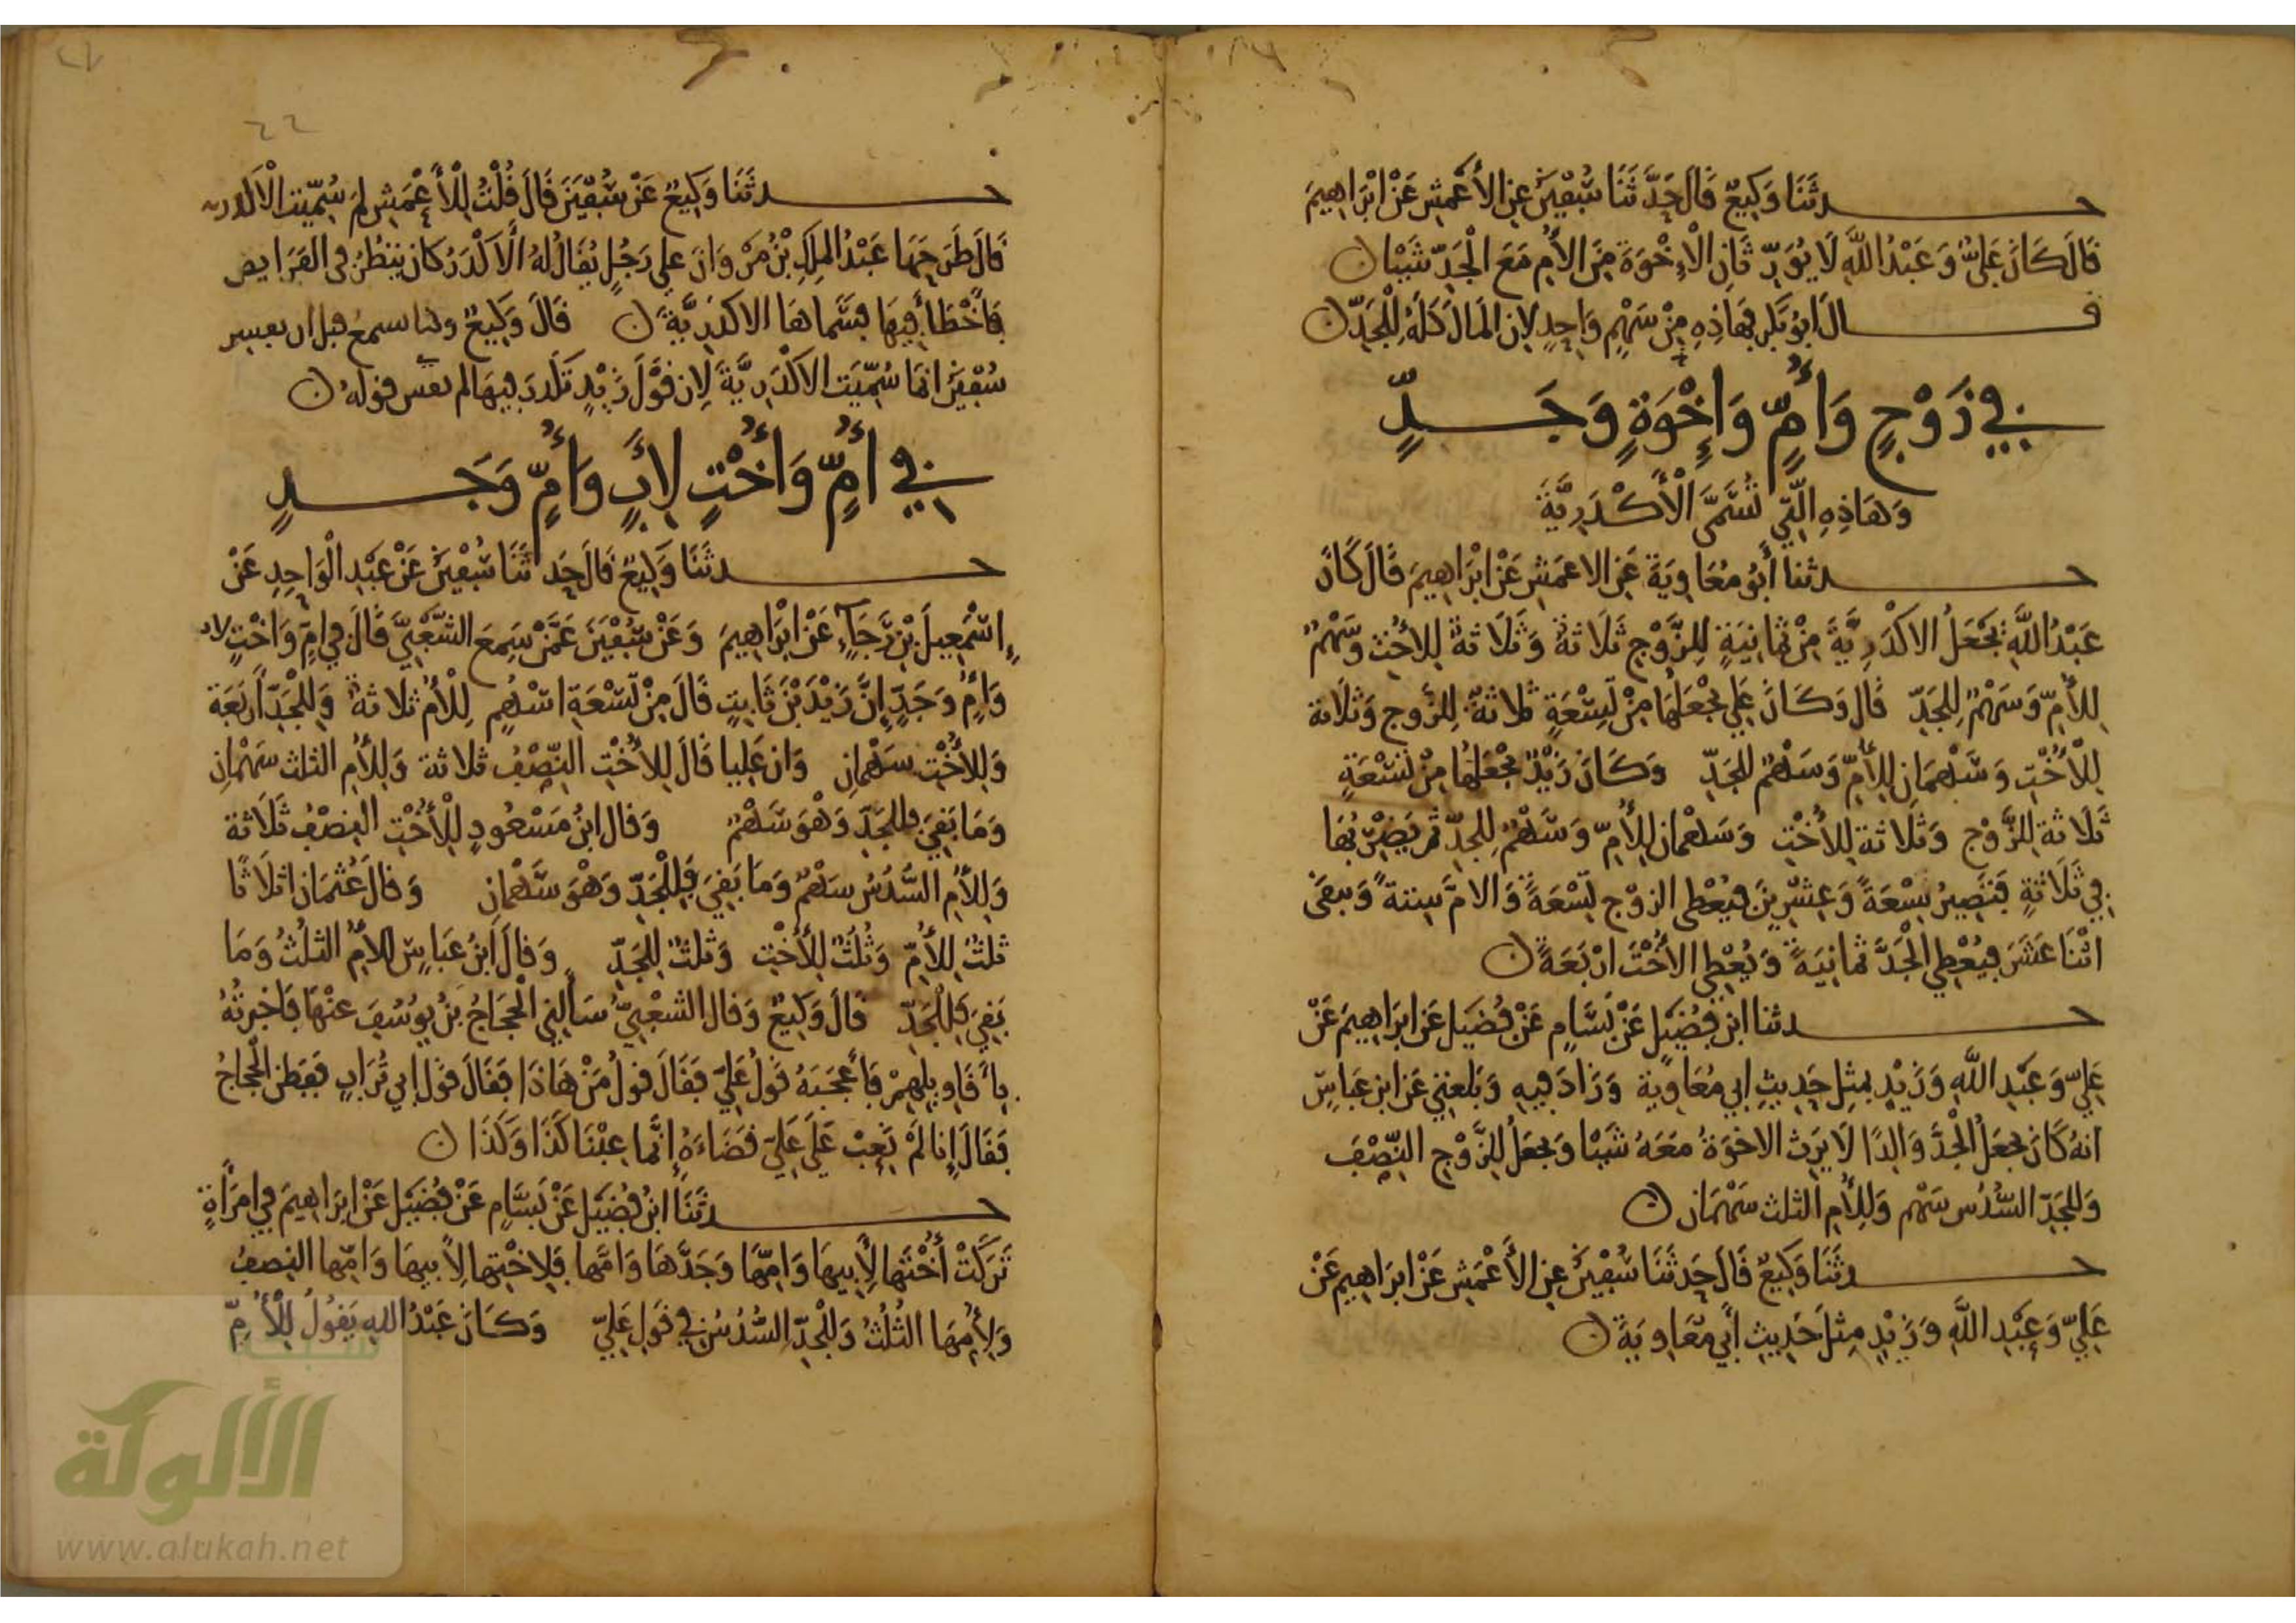 حدثنا وكيع قال حدثنا سفين عن الأعمش عن ابراهيم
قال كان علي وعبد الله لا يورثان الإخوة من الأم مع الجد شيئا
قال ابو بكر بهاذه من سهم واحد لان المال كله للجد
في زوج وأم وإخوة وجد
وهاذه التي تسمى الأكدرية
حدثنا أبو معاوية عن الاعمش عن ابراهيم قال كان
عبد الله يجعل الاكدرية من ثمانية للزوج ثلاثة وثلاثة للاخت وسهم
للأم وسهم للجد قال وكان علي يجعلها من تسعة ثلاثة للزوج وثلاثة
للأخت وسهمان للأم وسهم للجد وكان زيد يجعلها من تسعة
ثلاثة للزوج وثلاثة للأخت وسهمان للأم وسهم للجد ثم يضربها
في ثلاثة فتصير سبعة وعشرين فيعطى الزوج تسعة والام ستة ويبقى
اثنا عشر فيعطي الجد ثمانية ويعطي الأخت اربعة
حدثنا ابن فضيل عن بسام عن فضيل عن ابراهيم عن
علي وعبد الله وزيد بمثل حديث ابي معاوية وزاد فيه وبلغني عن ابن عباس
انه كان يجعل الجد والدا لا يرث الاخوة معه شيئا ويجعل للزوج النصف
وللجد السدس سهم وللأم الثلث سهمان
حدثنا وكيع قال حدثنا سفين عن الأعمش عن ابراهيم عن
علي وعبد الله وزيد مثل حديث أبي معاوية
٤٤
حدثنا وكيع عن سفين قال قلت للأعمش لم سميت الأكدرية
قال طرحها عبد الملك بن مروان على رجل يقال له الأكدر كان ينظر في الفرايض
فأخطأ فيها فسماها الاكدرية قال وكيع وكنا نسمع قبل ان يفسر
سفين انما سميت الاكدرية لان قول زيد تكدر فيها لم يفس قوله
في أم وأخت لأب وأم وجد
حدثنا وكيع قال حدثنا سفين عن عبد الواحد عن
إسمعيل بن رجاء عن ابراهيم وعن سفين عمن سمع الشعبي قال في ام واخت لاب
وأم وجد إن زيد بن ثابت قال من تسعة اسهم للأم ثلاثة وللجد أربعة
وللأخت سهمان وان عليا قال للأخت النصف ثلاثة وللأم الثلث سهمان
وما بقي فللجد وهو سهم وقال ابن مسعود للأخت النصف ثلاثة
وللأم السدس سهم وما بقي فللجد وهو سهمان وقال عثمان اثلاثا
ثلث للأم وثلث للأخت وثلث للجد وقال ابن عباس للأم الثلث وما
بقي فللجد قال وكيع وقال الشعبي سألني الحجاج بن يوسف عنها فاخبرته
بأقاويلهم فأعجبه قول علي فقال قول من هاذا فقال قول ابي تراب ففطن الحجاج
فقال إنا لم نعب على علي قضاءه إنما عبنا كذا وكذا
حدثنا ابن فضيل عن بسام عن فضيل عن ابراهيم في امرأة
تركت أختها لأبيها وامها وجدها وامها فلاختها لأبيها وامها النصف
ولأمها الثلث وللجد السدس في قول علي وكان عبد الله يقول للأم
شبكة
الألوكة
www.alukah.net